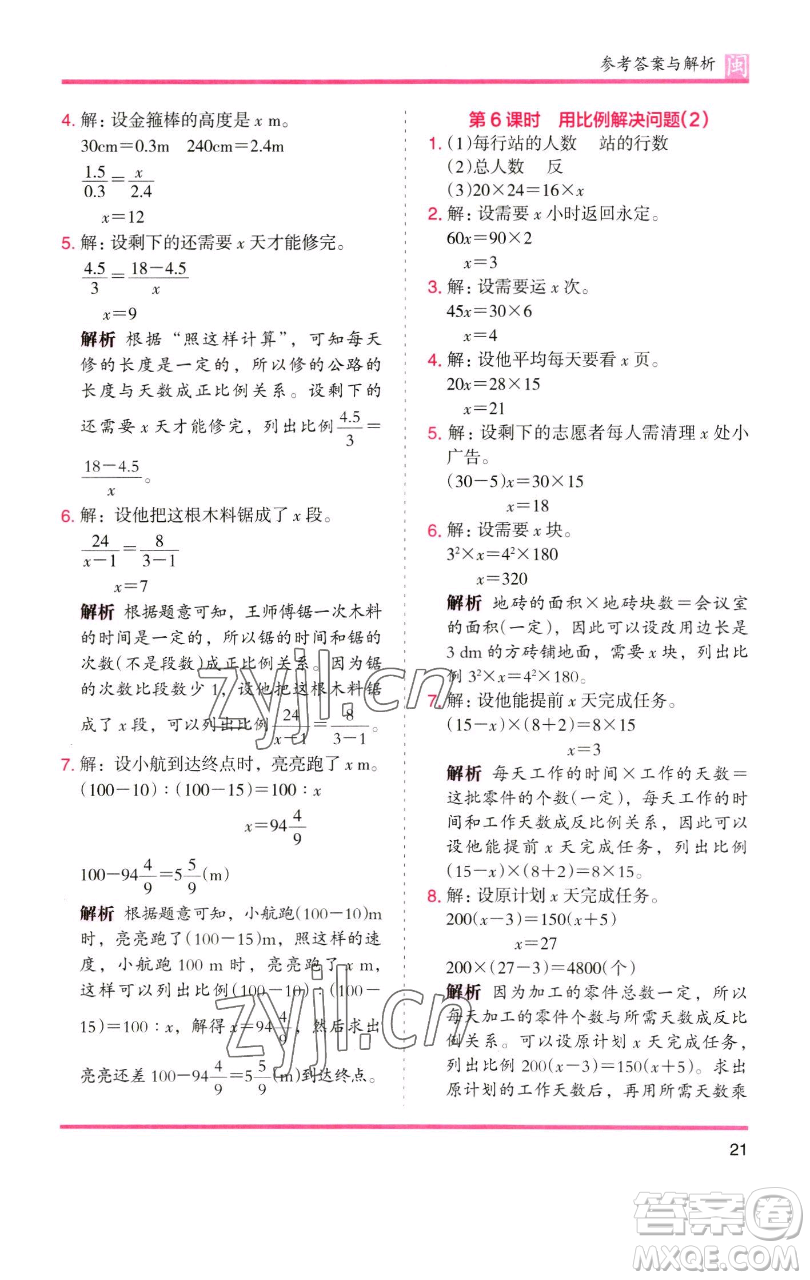 参考答案与解析 闽
4. 解：设金箍棒的高度是 x m。
30cm＝0.3m　240cm＝2.4m
1.5/0.3＝x/2.4
x＝12
5. 解：设剩下的还需要 x 天才能修完。
4.5/3＝(18－4.5)/x
x＝9
解析 根据“照这样计算”，可知每天
修的长度是一定的，所以修的公路的
长度与天数成正比例关系。设剩下的
还需要 x 天才能修完，列出比例 4.5/3＝
(18－4.5)/x。
6. 解：设他把这根木料锯成了 x 段。
24/(x－1)＝8/(3－1)
x＝7
解析 根据题意可知，王师傅锯一次木料
的时间是一定的，所以锯的时间和锯的
次数(不是段数)成正比例关系。因为锯
的次数比段数少 1，设他把这根木料锯
成了 x 段，可以列出比例 24/(x－1)＝8/(3－1)。
7. 解：设小航到达终点时，亮亮跑了 x m。
(100－10)∶(100－15)＝100∶x
x＝94 4/9
100－94 4/9＝5 5/9(m)
解析 根据题意可知，小航跑(100－10)m
时，亮亮跑了(100－15)m，照这样的速
度，小航跑 100 m 时，亮亮跑了 x m，
这样可以列出比例(100－10)∶(100－
15)＝100∶x，解得 x＝94 4/9，然后求出
亮亮还差 100－94 4/9＝5 5/9(m)到达终点。
第 6 课时　用比例解决问题(2)
1. (1)每行站的人数　站的行数
(2)总人数　反
(3)20×24＝16×x
2. 解：设需要 x 小时返回永定。
60x＝90×2
x＝3
3. 解：设需要运 x 次。
45x＝30×6
x＝4
4. 解：设他平均每天要看 x 页。
20x＝28×15
x＝21
5. 解：设剩下的志愿者每人需清理 x 处小
广告。
(30－5)x＝30×15
x＝18
6. 解：设需要 x 块。
3²×x＝4²×180
x＝320
解析 地砖的面积×地砖块数＝会议室
的面积(一定)，因此可以设改用边长是
3 dm 的方砖铺地面，需要 x 块，列出比
例 3²×x＝4²×180。
7. 解：设他能提前 x 天完成任务。
(15－x)×(8＋2)＝8×15
x＝3
解析 每天工作的时间×工作的天数＝
这批零件的个数(一定)，每天工作的时
间和工作天数成反比例关系，因此可以
设他能提前 x 天完成任务，列出比例
(15－x)×(8＋2)＝8×15。
8. 解：设原计划 x 天完成任务。
200(x－3)＝150(x＋5)
x＝27
200×(27－3)＝4800(个)
解析 因为加工的零件总数一定，所以
每天加工的零件个数与所需天数成反比
例关系。可以设原计划 x 天完成任务，
列出比例 200(x－3)＝150(x＋5)。求出
原计划的工作天数后，再用所需天数乘
21
zyjl.cn
zyjl.cn
答案圈
MXQE.COM